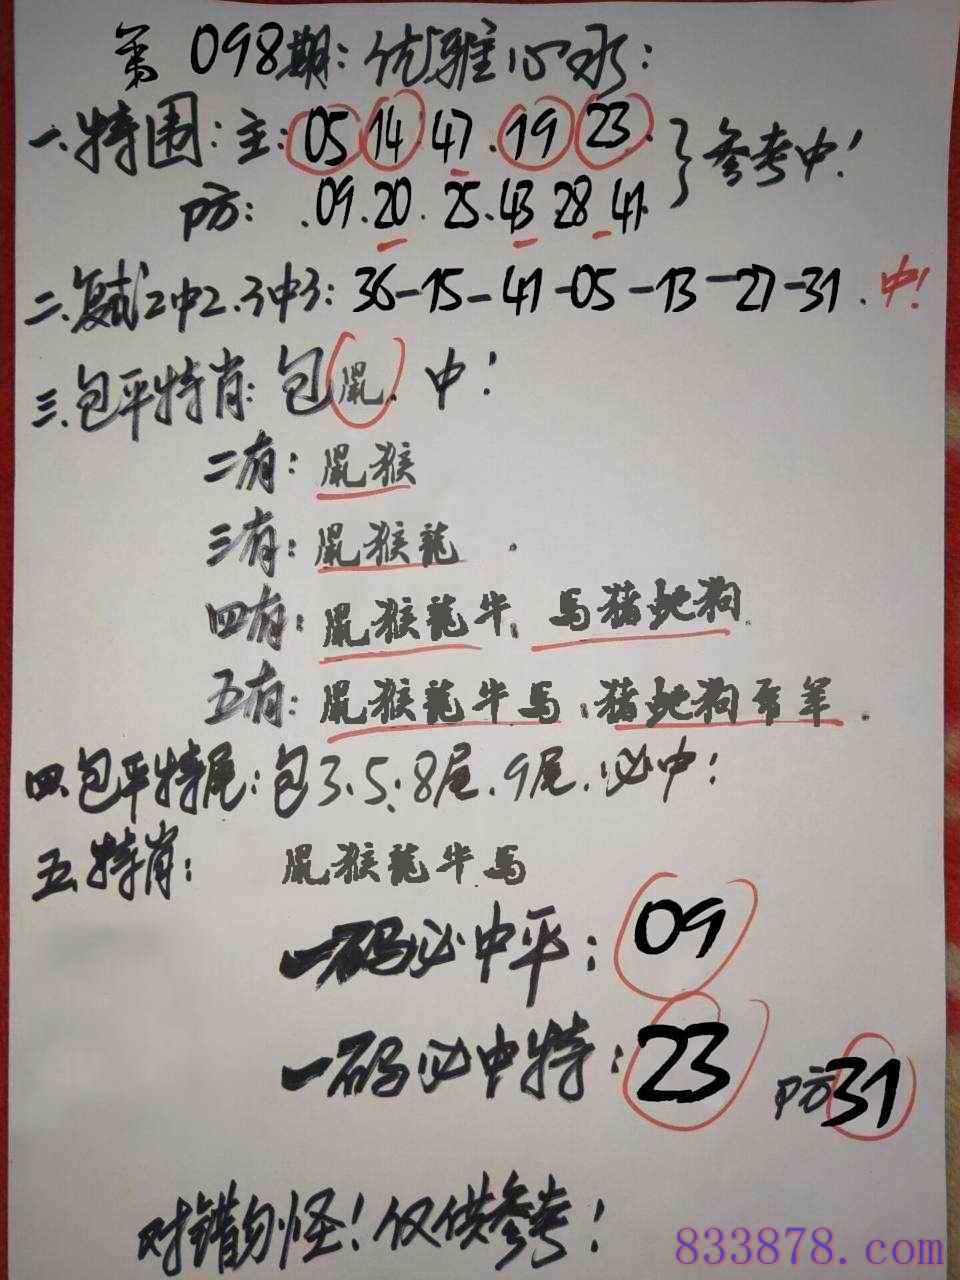 第098期:优雅心水:
一.特围:主:05 14 47.19 23.}参考中!
防:.09.20.25.43 28 41.
二.复式2中2.3中3:36-15-41-05-13-27-31.中!
三.包平特肖:包鼠.中!
二有:鼠猴
三有:鼠猴龍.
四有:鼠猴龍牛.马猪蛇狗.
五有:鼠猴龍牛马.猪蛇狗 羊.
四.包平特尾:包3.5.8尾.9尾.必中!
五.特肖:鼠猴龍牛马
一码必中平:09
一码必中特:23 防31
对错勿怪!仅供参考!
833878.com